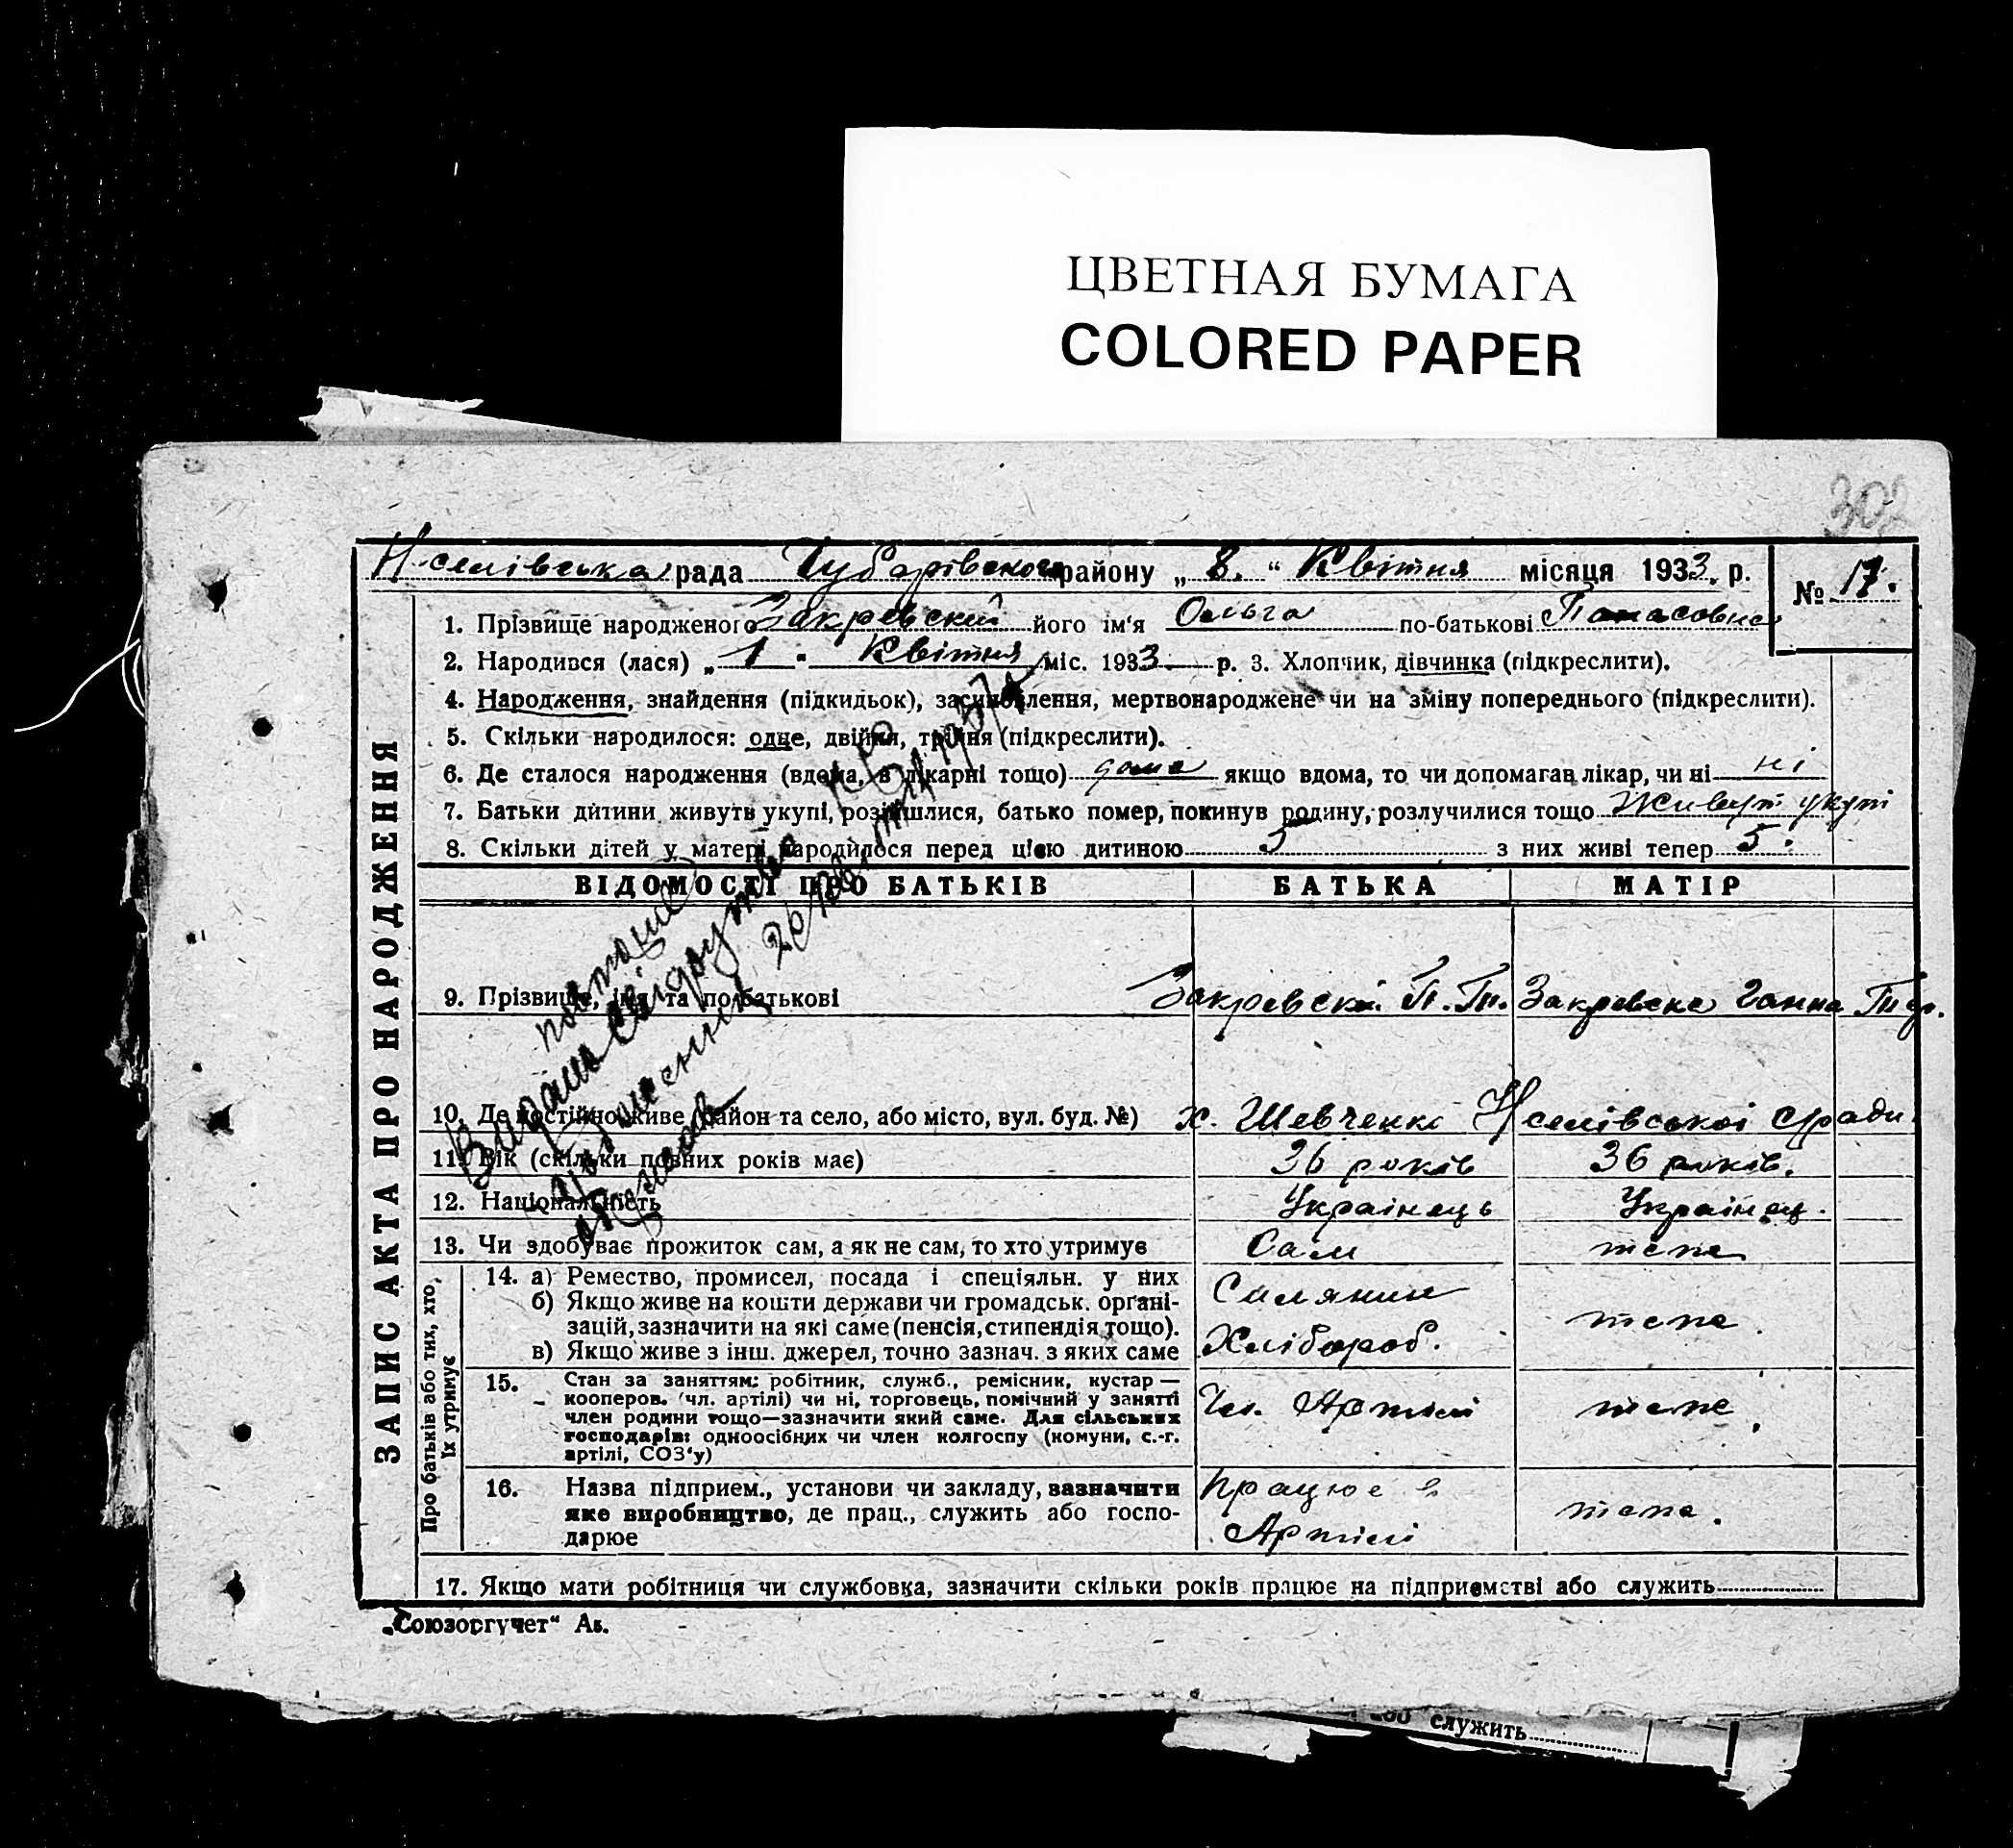 ЦВЕТНАЯ БУМАГА
COLORED PAPER
302
Н селівська рада Чубарівского району „ 8. “ Квітня місяця 1933. р.
№ 17.
1. Прізвище народженого Закревский його ім'я Ольга по-батькові Панасовна
2. Народився (лася) „ 1 " Квітня міс. 1933 р. 3. Хлопчик, дівчинка (підкреслити).
4. Народження, знайдення (підкидьок), засиновлення, мертвонароджене чи на зміну попереднього (підкреслити).
5. Скільки народилося: одне, двійня, трійня (підкреслити).
6. Де сталося народження (вдома, в лікарні тощо) дома якщо вдома, то чи допомагав лікар, чи ні ні
7. Батьки дитини живуть укупі, розійшлися, батько помер, покинув родину, розлучилися тощо Живут укупі
8. Скільки дітей у матері народилося перед цією дитиною 5 з них живі тепер 5.
ВІДОМОСТІ ПРО БАТЬКІВ БАТЬКА МАТІР
9. Прізвище, ім'я та по-батькові Закревский П. Закревска Ганна
10. Де постійно живе (район та село, або місто, вул. буд. №) х. Шевченко Н селівської с/ради
11. Вік (скільки повних років має) 36 років 36 років.
12. Національність Українець Українец.
13. Чи здобуває прожиток сам, а як не сам, то хто утримує Сам
14. а) Ремество, промисел, посада і спеціяльн. у них
б) Якщо живе на кошти держави чи громадськ. органі-
зацій, зазначити на які саме (пенсія, стипендія тощо).
в) Якщо живе з інш. джерел, точно зазнач. з яких саме
Силянин
Хлібороб.
15. Стан за заняттям: робітник, служб., ремісник, кустар—
кооперов. (чл. артілі) чи ні, торговець, помічний у занятті
член родини тощо—зазначити який саме. Для сільських
господарів: одноосібних чи член колгоспу (комуни, с.-г.
артілі, СОЗ'у)
Чл. Артілі
16. Назва підприєм., установи чи закладу, зазначити
яке виробництво, де прац., служить або госпо-
дарює
Працює в
Артілі
17. Якщо мати робітниця чи службовка, зазначити скільки років працює на підприємстві або служить
ЗАПИС АКТА ПРО НАРОДЖЕННЯ
Про батьків або тих, хто,
їх утримує
„Союзоргучет“ Ав.
служить